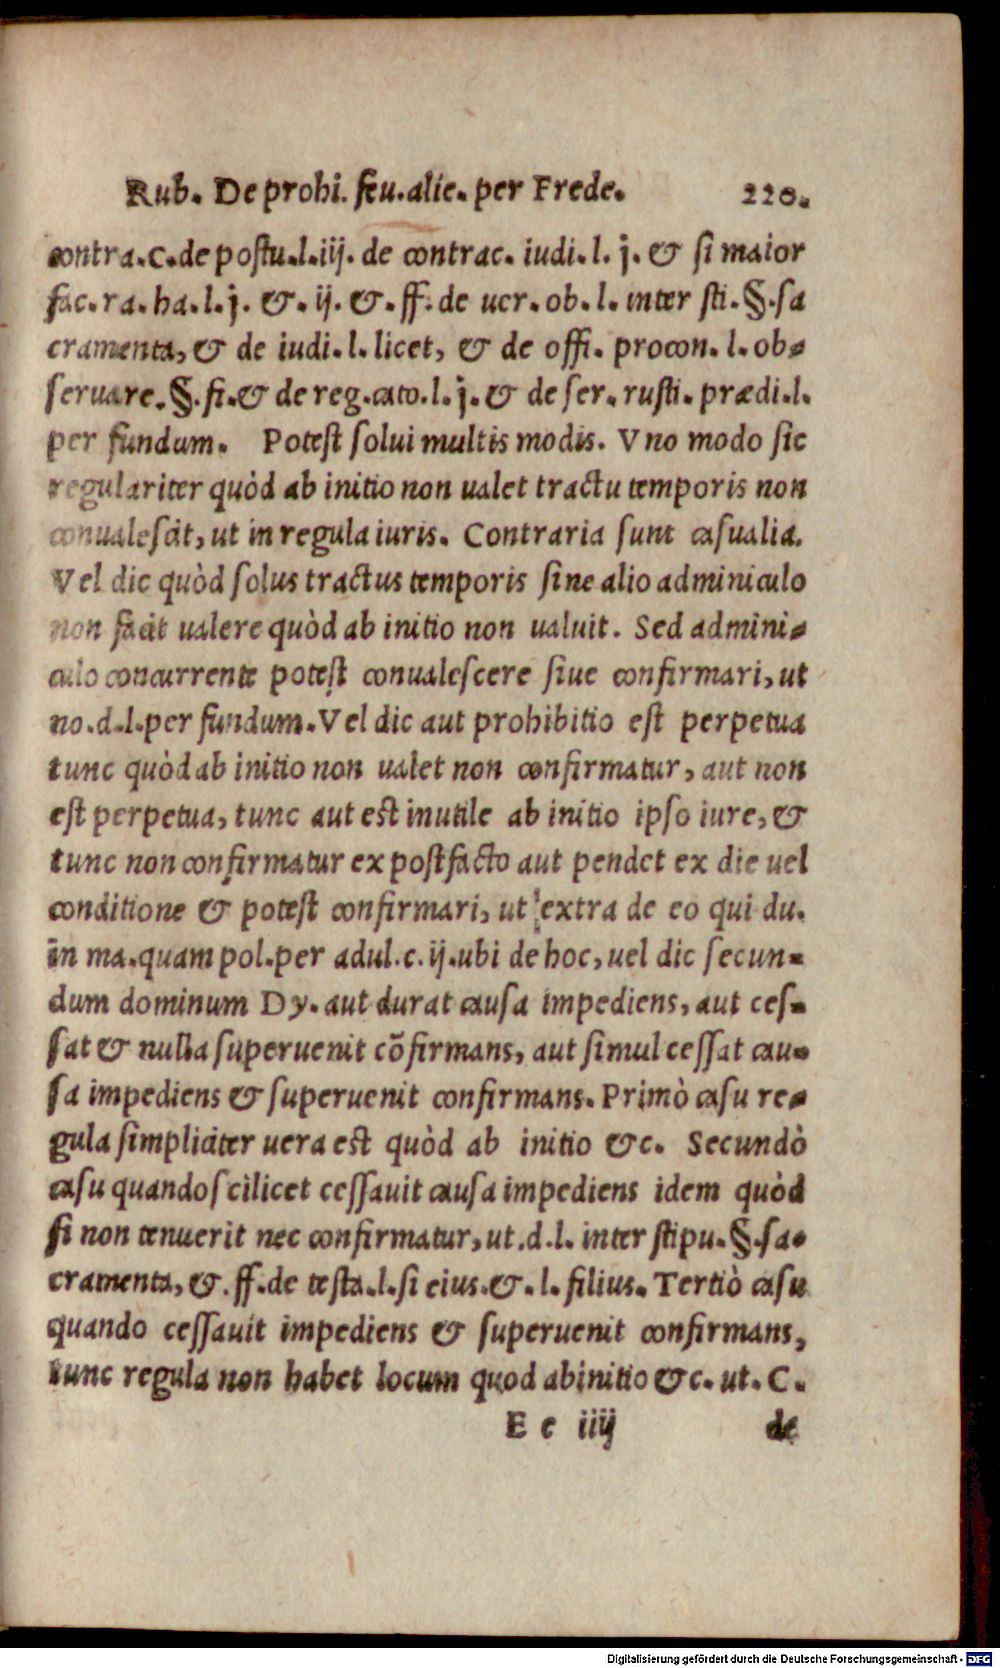 Rub. De prohi. feu. alie. per Frede. 220.
contra. C. de postu. l. iij. de contrac. iudi. l. j. & si maior
fac. ra. ha. l. j. &. ij. &. ff. de uer. ob. l. inter sti. §. sa
cramenta, & de iudi. l. licet, & de offi. procon. l. ob-
seruare. §. fi. & de reg. cato. l. j. & de ser. rusti. prædi. l.
per fundum. Potest solui multis modis. Vno modo sic
regulariter quòd ab initio non ualet tractu temporis non
conualescit, ut in regula iuris. Contraria sunt casualia.
Vel dic quòd solus tractus temporis sine alio adminiculo
non facit ualere quòd ab initio non ualuit. Sed admini-
culo concurrente potest conualescere siue confirmari, ut
no. d. l. per fundum. Vel dic aut prohibitio est perpetua
tunc quòd ab initio non ualet non confirmatur, aut non
est perpetua, tunc aut est inutile ab initio ipso iure, &
tunc non confirmatur ex postfacto aut pendet ex die uel
conditione & potest confirmari, ut extra de eo qui du.
in ma. quam pol. per adul. c. ij. ubi de hoc, uel dic secun-
dum dominum Dy. aut durat causa impediens, aut ces-
sat & nulla superuenit cõfirmans, aut simul cessat cau-
sa impediens & superuenit confirmans. Primò casu re-
gula simpliciter uera est quòd ab initio &c. Secundò
casu quando scilicet cessauit causa impediens idem quòd
si non tenuerit nec confirmatur, ut. d. l. inter stipu. §. sa-
cramenta, &. ff. de testa. l. si eius. &. l. filius. Tertiò casu
quando cessauit impediens & superuenit confirmans,
tunc regula non habet locum quod abinitio &c. ut. C.
E e iiij de
Digitalisierung gefördert durch die Deutsche Forschungsgemeinschaft - DFG